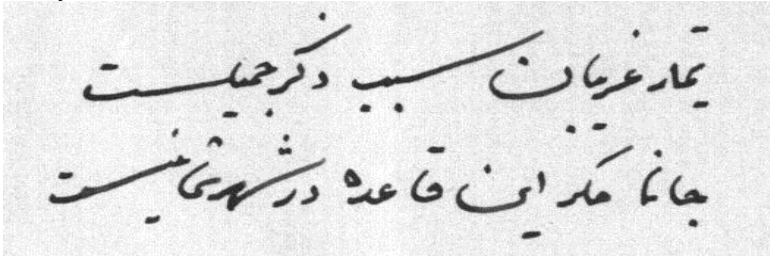 تیمار غریبان سبب ذکر جمیلست
جانا مگر این قاعده در شهر شما نیست